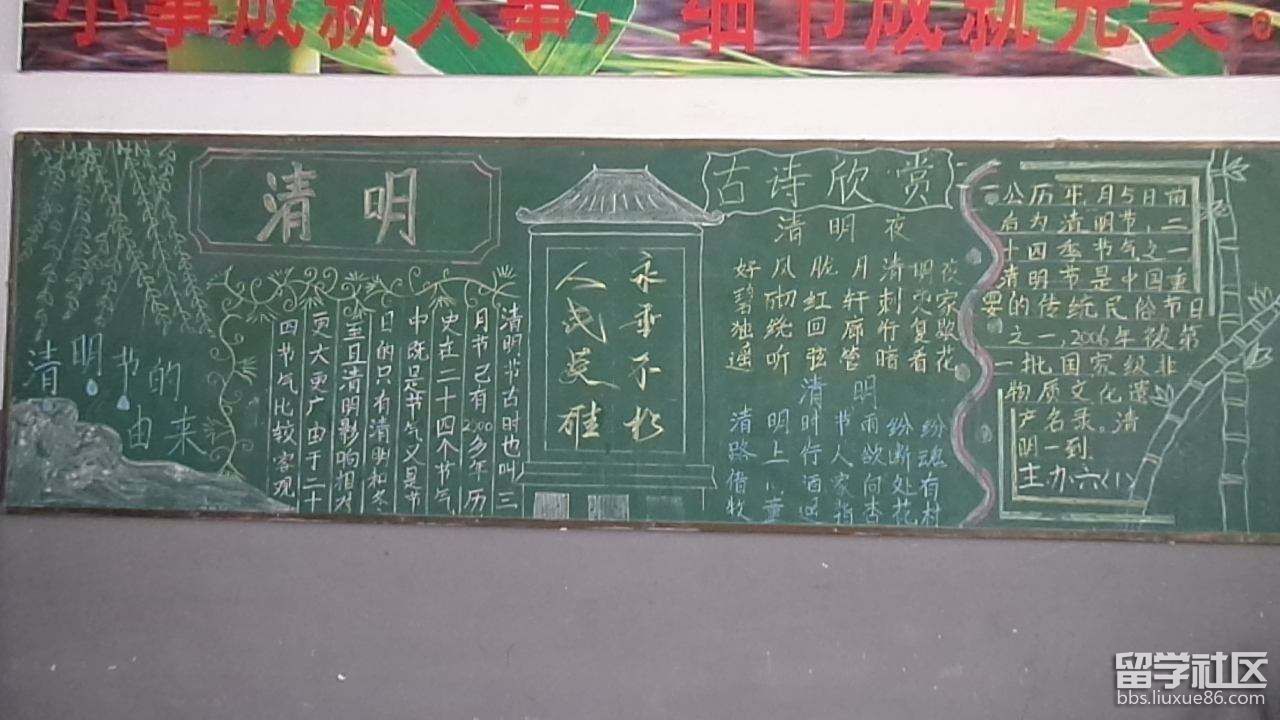 小事成就大事，细节成就完美。
清明
清明节的
由来
清明节古时也叫三
月节已有2000多年历
史在二十四个节气
中既是节气又是节
日的只有清明和冬
至且清明影响相对
更大更广由于二十
四节气比较客观
永垂不朽
人民英雄
古诗欣赏
清明夜
好风胧月清明夜
碧砌红轩刺史家
独绕回廊行复歇
遥听弦管暗看花
清明
清明时节雨纷纷
路上行人欲断魂
借酒家向处有
牧童遥指杏花村
公历4月5日前
后为清明节,二
十四季节气之一
清明节是中国重
要的传统民俗节日
之一,2006年被第
一批国家级非
物质文化遗
产名录。清
明一到
主办六(1)
留学社区
bbs.liuxue86.com